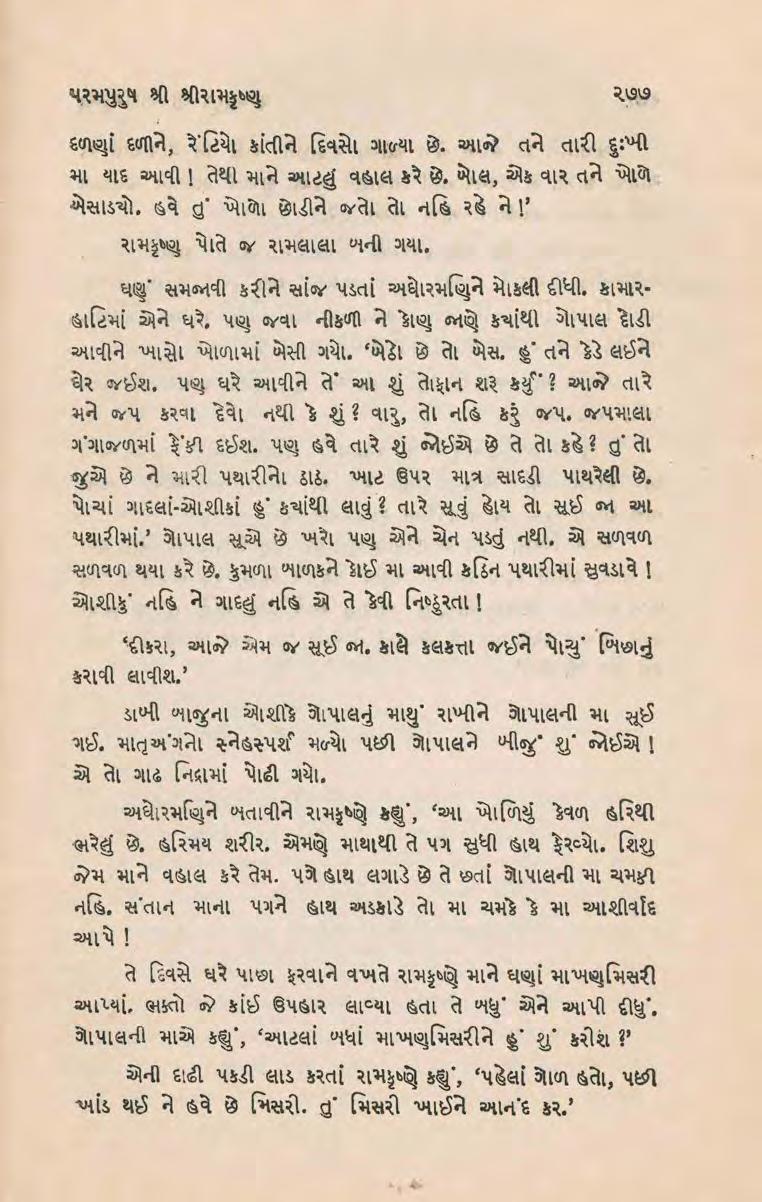 પરમપુરુષ શ્રી શ્રીરામકૃષ્ણ ૨૭૭
દળણાં દળીને, રેંટિયો કાંતીને દિવસો ગાળ્યા છે. આજે તને તારી દુઃખી
મા યાદ આવી! તેથી માને આટલું વહાલ કરે છે. બોલ, એક વાર તને ખોળે
બેસાડયો. હવે તું ખોળો છોડીને જતો તો નહિ રહે ને!’
રામકૃષ્ણ પોતે જ રામલાલા બની ગયા.
ઘણું સમજાવી કરીને સાંજ પડતાં અઘોરમણિને મોકલી દીધી. કામાર-
હાટિમાં એને ઘરે. પણ જવા નીકળી ને કોણ જાણે કયાંથી ગોપાલ દોડી
આવીને ખાસો ખોળામાં બેસી ગયો. ‘બેઠો છે તો બેસ. હું તને કેડે લઈને
ઘેર જઈશ. પણ ઘરે આવીને તેં આ શું તોફાન શરૂ કર્યું? આજે તારે
મને જપ કરવા દેવો નથી કે શું? વારુ, તો નહિ કરું જપ. જપમાલા
ગંગાજળમાં ફેંકી દઈશ. પણ હવે તારે શું જોઈએ છે તે તો કહે? તું તો
જુએ છે ને મારી પથારીનો ઠાઠ. ખાટ ઉપર માત્ર સાદડી પાથરેલી છે.
પોચાં ગાદલાં-ઓશીકાં હું કયાંથી લાવું? તારે સૂવું હોય તો સૂઈ જા આ
પથારીમાં.’ ગોપાલ સૂએ છે ખરો પણ એને ચેન પડતું નથી. એ સળવળ
સળવળ થયા કરે છે. કુમળા બાળકને કોઈ મા આવી કઠિન પથારીમાં સુવડાવે!
ઓશીકું નહિ ને ગાદલું નહિ એ તે કેવી નિષ્ઠુરતા!
‘દીકરા, આજે એમ જ સૂઈ જા. કાલે કલકત્તા જઈને પોચું બિછાનું
કરાવી લાવીશ.’
ડાબી બાજુના ઓશીકે ગોપાલનું માથું રાખીને ગોપાલની મા સૂઈ
ગઈ. માતૃઅંગનો સ્નેહસ્પર્શ મળ્યો પછી ગોપાલને બીજું શું જોઈએ!
એ તો ગાઢ નિદ્રામાં પોઢી ગયો.
અઘોરમણિને બતાવીને રામકૃષ્ણે કહ્યું, ‘આ ખોળિયું કેવળ હરિથી
ભરેલું છે. હરિમય શરીર. એમણે માથાથી તે પગ સુધી હાથ ફેરવ્યો. શિશુ
જેમ માને વહાલ કરે તેમ. પગે હાથ લગાડે છે તે છતાં ગોપાલની મા ચમકી
નહિ. સંતાન માના પગને હાથ અડકાડે તો મા ચમકે કે મા આશીર્વાદ
આપે!
તે દિવસે ઘરે પાછા ફરવાને વખતે રામકૃષ્ણે માને ઘણાં માખણમિસરી
આપ્યાં. ભક્તો જે કાંઈ ઉપહાર લાવ્યા હતા તે બધું એને આપી દીધું.
ગોપાલની માએ કહ્યું, ‘આટલાં બધાં માખણમિસરીને હું શું કરીશ?’
એની દાઢી પકડી લાડ કરતાં રામકૃષ્ણે કહ્યું, ‘પહેલાં ગોળ હતો, પછી
ખાંડ થઈ ને હવે છે મિસરી. તું મિસરી ખાઈને આનંદ કર.’